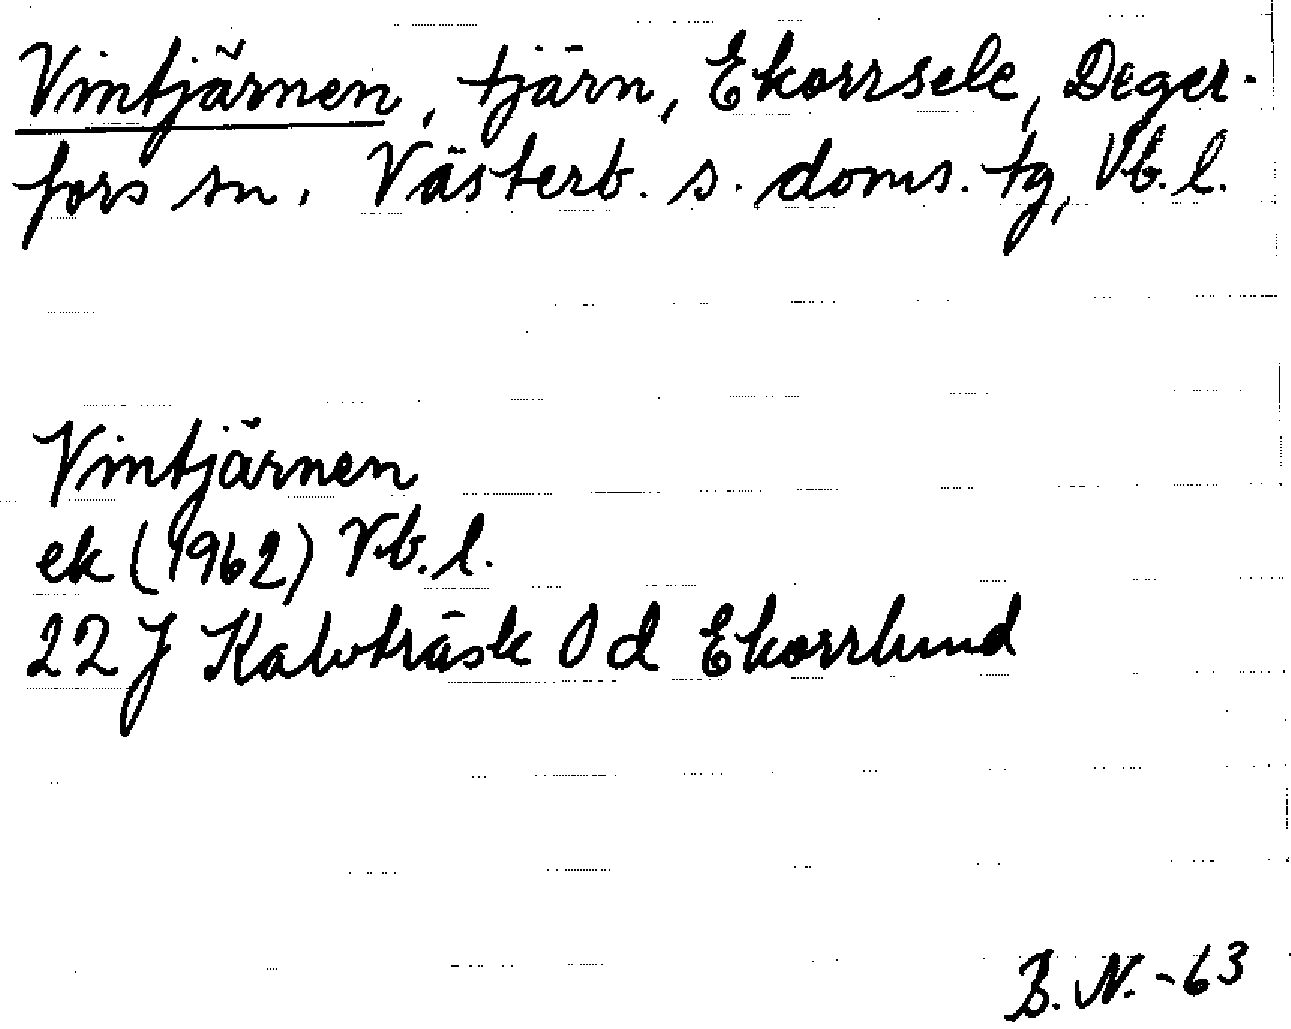 Vintjärnen, tjärn, Ekorrsele, Deger-
fors sn, Västerb. s. doms. tg, Vb. l.
Vintjärnen
ek (1962) Vb. l.
22 J Kalvträsk 0 d Ekorrlund
B. N. -63